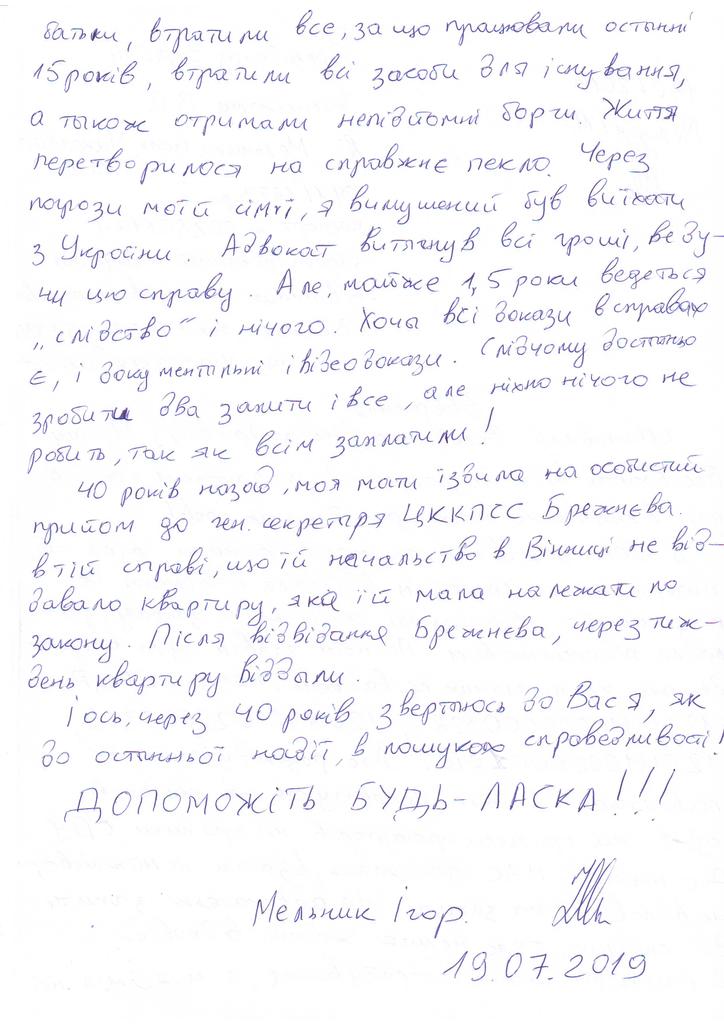 батьки, втратили все, за що працювали останні
15 років, втратили всі засоби для існування,
а також отримали непідйомні борги. Життя
перетворилося на справжнє пекло. Через
погрози моїй сім'ї, я вимушений був виїхати
з України. Адвокат витягнув всі гроші, веду-
чи цю справу. Але, майже 1,5 роки ведеться
„слідство“ і нічого. Хоча всі докази в справах
є, і документальні і відеодокази. Слідчому достатньо
зробити два запити і все, але ніхто нічого не
робить, так як всім заплатили!
40 років назад, моя мати їздила на особистий
прийом до ген. секретаря ЦККПСС Брежнєва.
в тій справі, що їй начальство в Вінниці не від-
давало квартиру, яка їй мала належати по
закону. Після відвідання Брежнєва, через тиж-
день квартиру віддали.
І ось, через 40 років звертаюсь до Вас я, як
до останньої надії, в пошуках справедливості!
ДОПОМОЖІТЬ БУДЬ-ЛАСКА!!!
Мельник Ігор.
19.07.2019